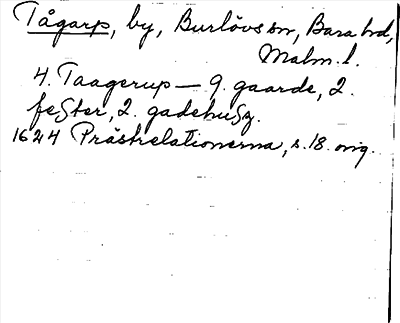 Tågarp, by, Burlövs sn, Bara hd,
Malm. l.
4. Taagerup — 9. gaarde, 2.
feSter, 2. gadehuSz.
1624 Prästrelationerna, s. 18. orig.